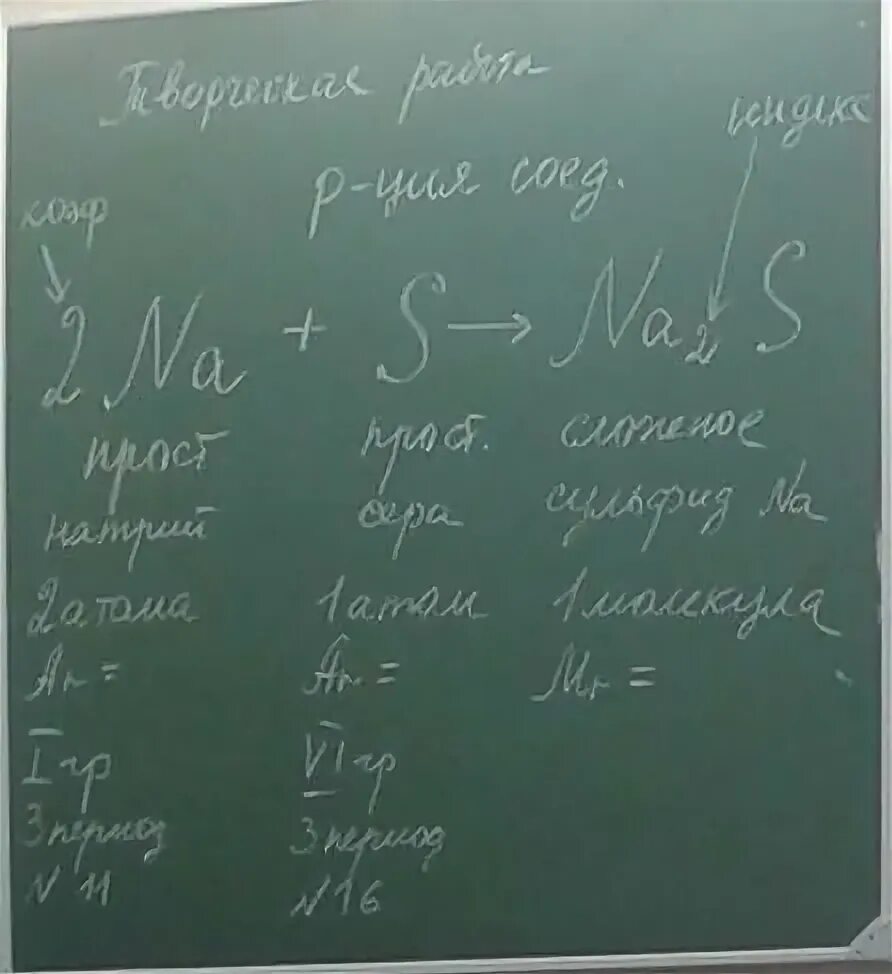 Творческая работа
индекс
р-ция соед.
коэф
2 Na + S → Na₂ S
прост прост. сложеное
натрий сера сульфид Na
2 атома 1 атом 1 молекула
Ar = Ar = Mr =
I гр VI гр
3 период 3 период
N 11 N 16